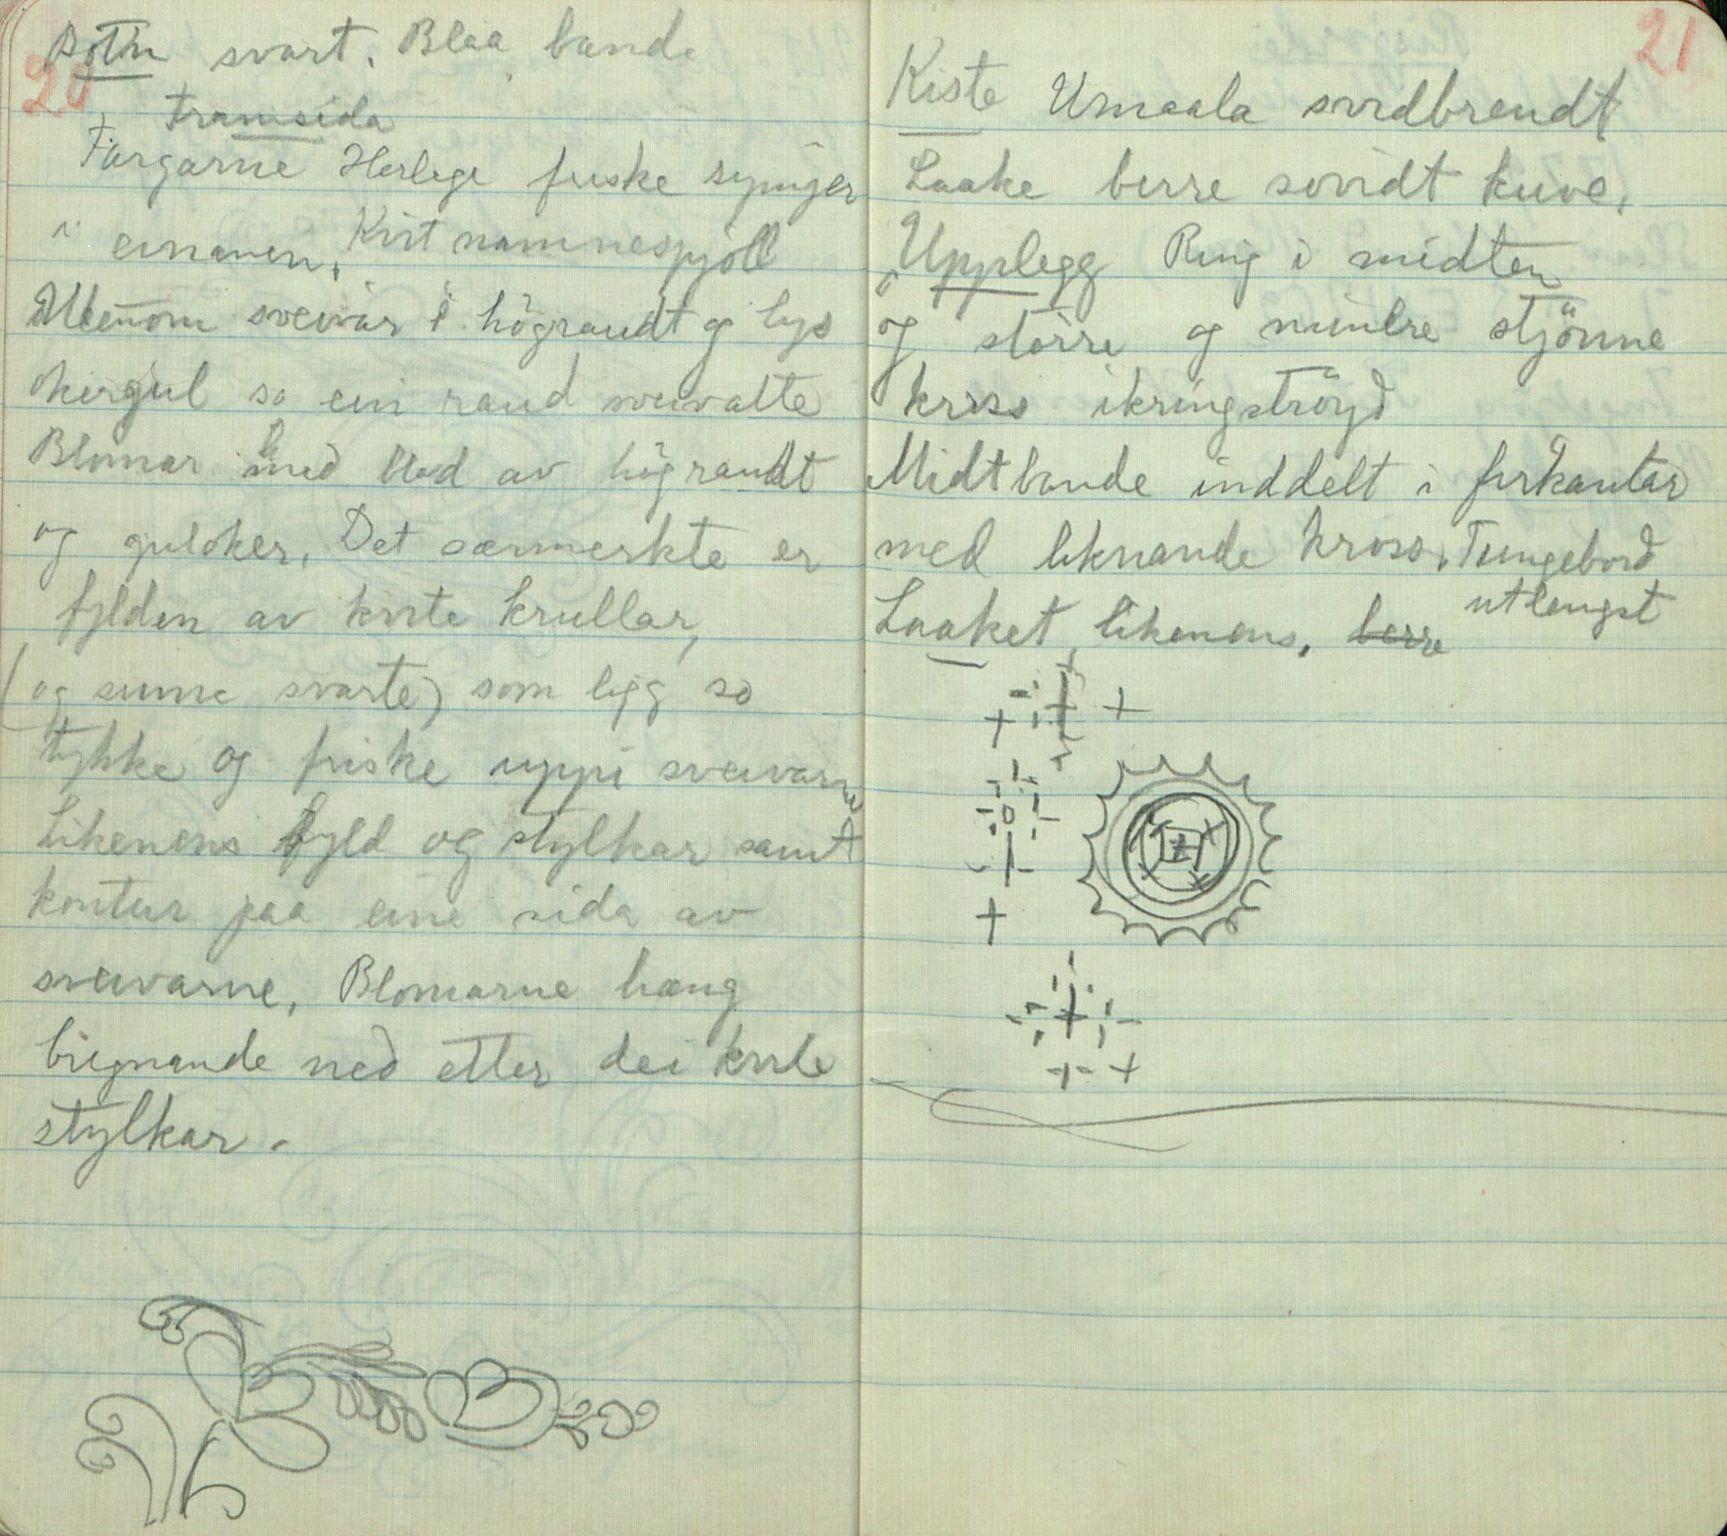 20
Botn svart. Blaa band
Framsida
Fargarne Herlege friske syngjer
i einanen. Kvit namnespjöll
Utenom sveivar i högraudt og lys
okergul so ein raud sveivatte
Blomar med blad av högraudt
og guloker. Det særmerkte er
fylden av kvite krullar,
(og sume svarte) som ligg so
tykke og friske uppi sveivarne
Likenens fyld og stylkar samt
kontur paa eine sida av
sveivarne, Blomarne hæng
bùgnande ned etter dei kvite
stylkar.
21
Kiste Umaala svidbrendt
Laake berre sovidt kuve.
Upplegg Ring i midten
og större og mindre stjönne
kross ikringströyd
Midtbande inddelt i firkantar
med liknande kross, Tungebord
utlengst
Laaket likenens, berre